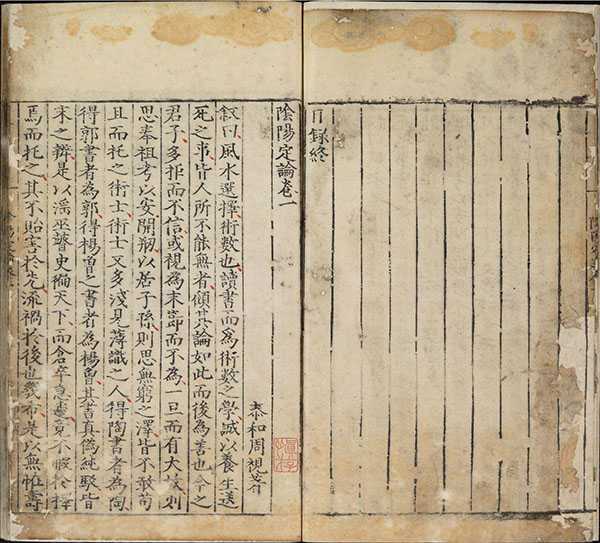 目錄終
陰陽定論卷一
泰和周視著
叙曰風水選擇術數也讀書而為術數之學誠以養生送
死之事皆人所不能無者傾其論如此而後為善也今之
君子多拒而不信或視為末節而不為一旦而有大故則
思奉祖考以安開剏以居子孫則思無窮之澤皆不敢苟
且而托之術士術士又多淺見薄識之人得陶書者為陶
得郭書者為郭得楊曾之書者為楊曾其書真偽純駁皆
未之辨是以滛巫瞽史徧天下而倉卒急遽竟不暇於擇
焉而托之其不貽害於先流禍於後也幾希是以無恠壽